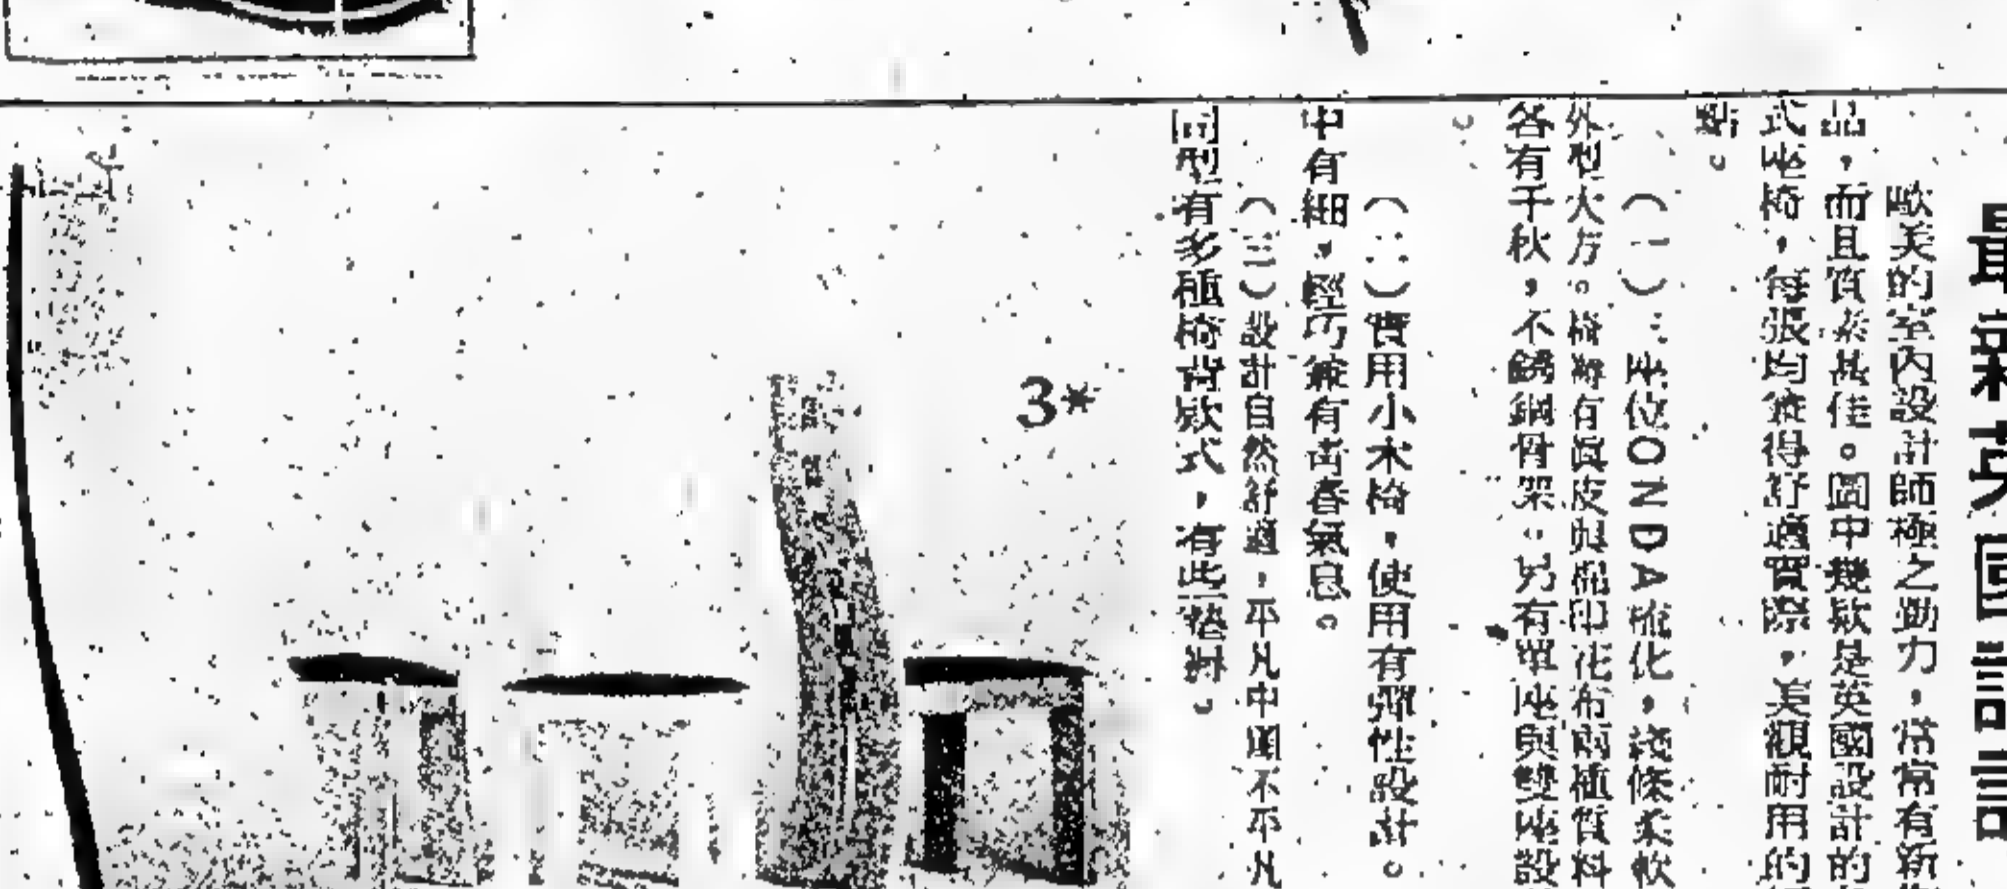 最新英國設計
歐美的室內設計師極之勤力，常常有新
品，而且質素甚佳。圖中幾款是英國設計的
式座椅，每張均兼得舒適實際，美觀耐用的
點。
（一）：座位ONDA梳化，綫條柔軟
外型大方。椅褥有眞皮與棉印花布兩種質料
各有千秋，不銹鋼骨架。另有單座與雙座設
。
（二）實用小木椅，使用有彈性設計。
中有細，輕巧兼有青春氣息。
（三）設計自然舒適，平凡中圖不平凡
同型有多種椅背款式，有些
3*